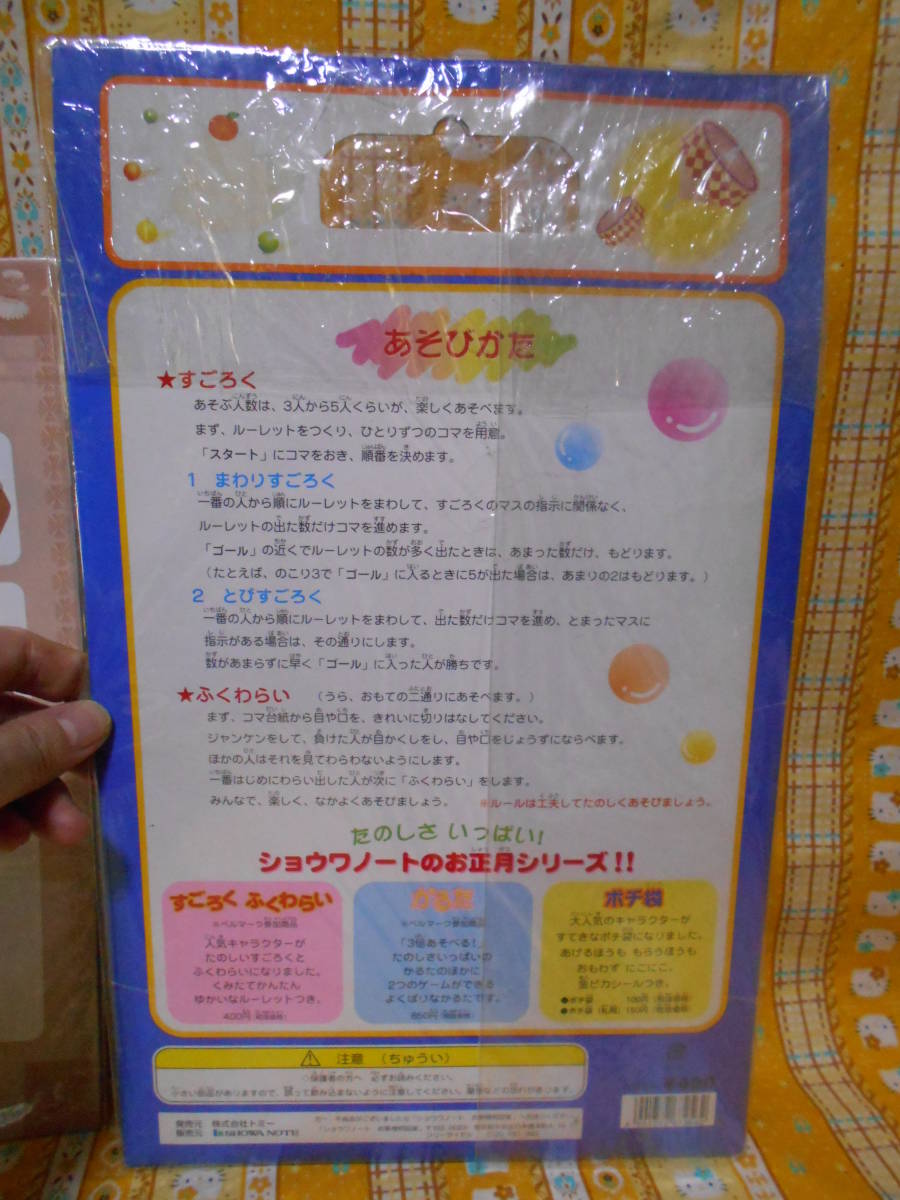 あそびかた
★すごろく
あそぶ人数は、3人から5人くらいが、楽しくあそべます。
まず、ルーレットをつくり、ひとりずつのコマを用意。
「スタート」にコマをおき、順番を決めます。
1 まわりすごろく
一番の人から順にルーレットをまわして、すごろくのマスの指示に関係なく、
ルーレットの出た数だけコマを進めます。
「ゴール」の近くでルーレットの数が多く出たときは、あまった数だけ、もどります。
（たとえば、のこり3で「ゴール」に入るときに5が出た場合は、あまりの2はもどります。）
2 とびすごろく
一番の人から順にルーレットをまわして、出た数だけコマを進め、とまったマスに
指示がある場合は、その通りにします。
数があまらずに早く「ゴール」に入った人が勝ちです。
★ふくわらい （うら、おもての二通りにあそべます。）
まず、コマ台紙から目や口を、きれいに切りはなしてください。
ジャンケンをして、負けた人が目かくしをし、目や口をじょうずにならべます。
ほかの人はそれを見てわらわないようにします。
一番はじめにわらい出した人が次に「ふくわらい」をします。
みんなで、楽しく、なかよくあそびましょう。 ※ルールは工夫してたのしくあそびましょう。
たのしさ いっぱい!
ショウワノートのお正月シリーズ!!
すごろく ふくわらい
※ベルマーク参加商品
人気キャラクターが
たのしいすごろくと
ふくわらいになりました。
くみたてかんたん
ゆかいなルーレットつき。
400円（税抜価格）
かるた
※ベルマーク参加商品
「3倍あそべる!」
たのしさいっぱいの
かるたのほかに
2つのゲームができる
よくばりなかるたです。
650円（税抜価格）
ポチ袋
大人気のキャラクターが
すてきなポチ袋になりました。
あげるほうも もらうほうも
おもわず にこにこ。
金ピカシールつき。
●ポチ袋 100円（税抜価格）
●ポチ袋（札用）150円（税抜価格）
注意 （ちゅうい）
◇保護者の方へ 必ずお読みください。
小さい部品がありますので、誤って飲み込まないように注意してください。窒息などの恐れがあります。
発売元 株式会社トミー
販売元 SHOWA NOTE